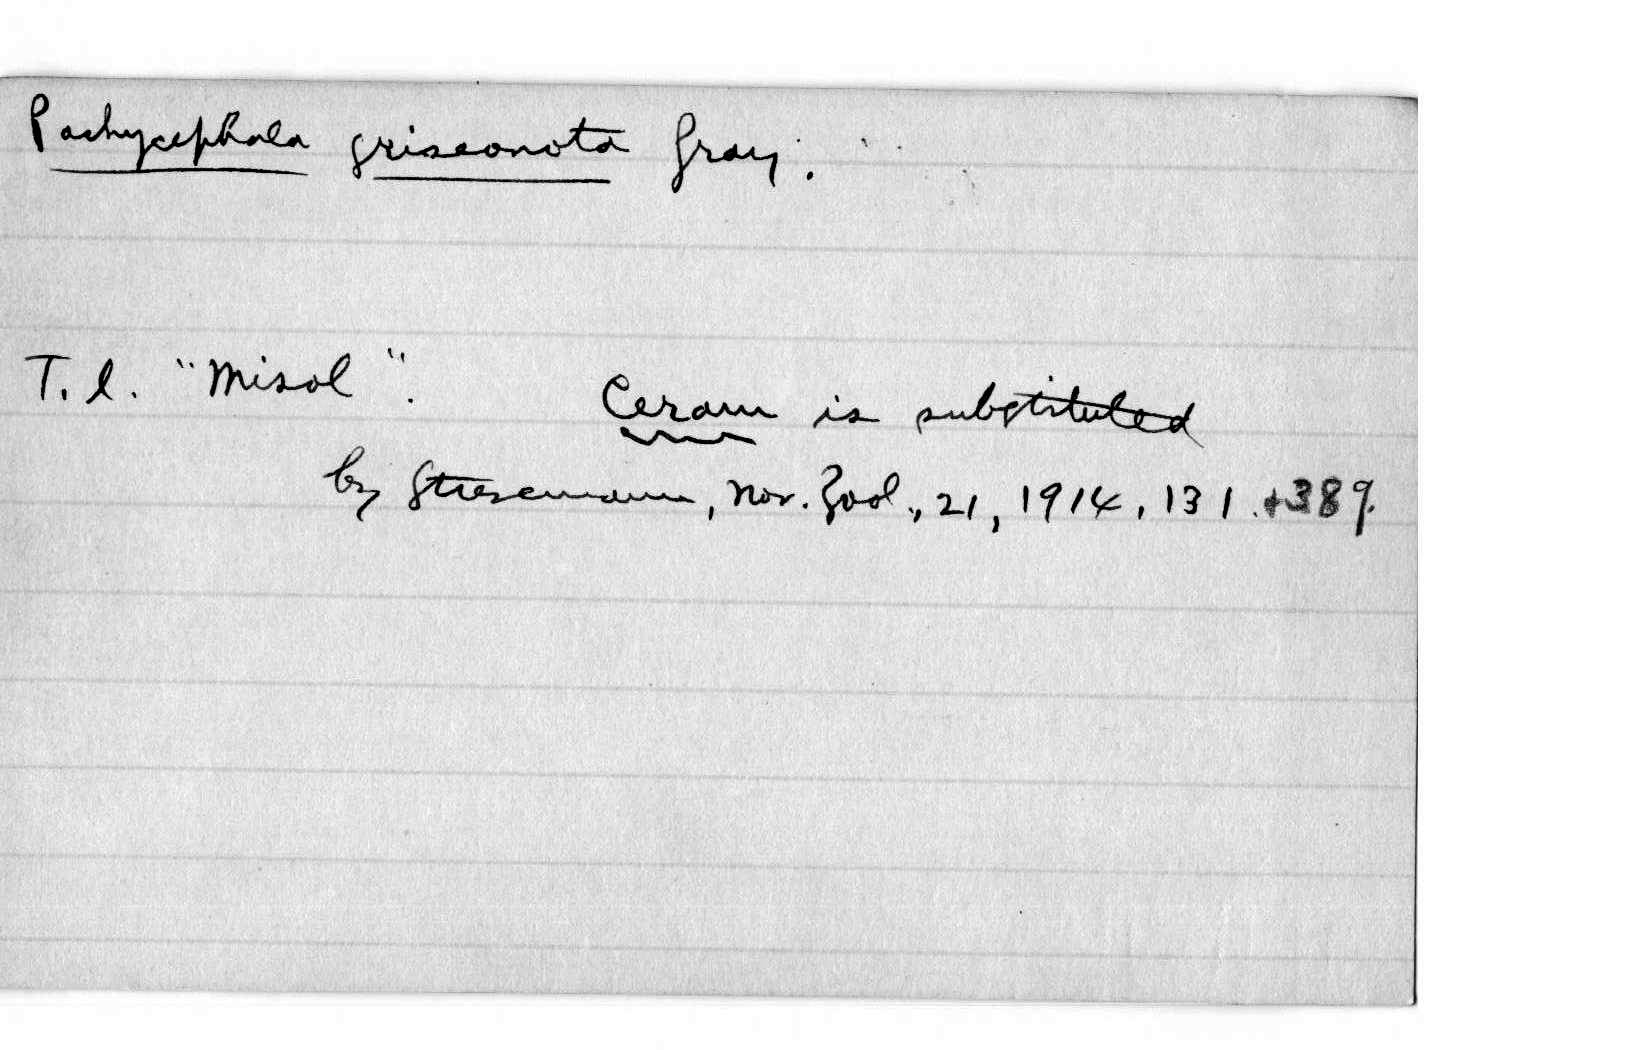 Pachycephala griseonota Gray.
T. l. "Misol". Ceram is substituted
by Stresemann, Nov. Zool., 21, 1914, 131. + 389.